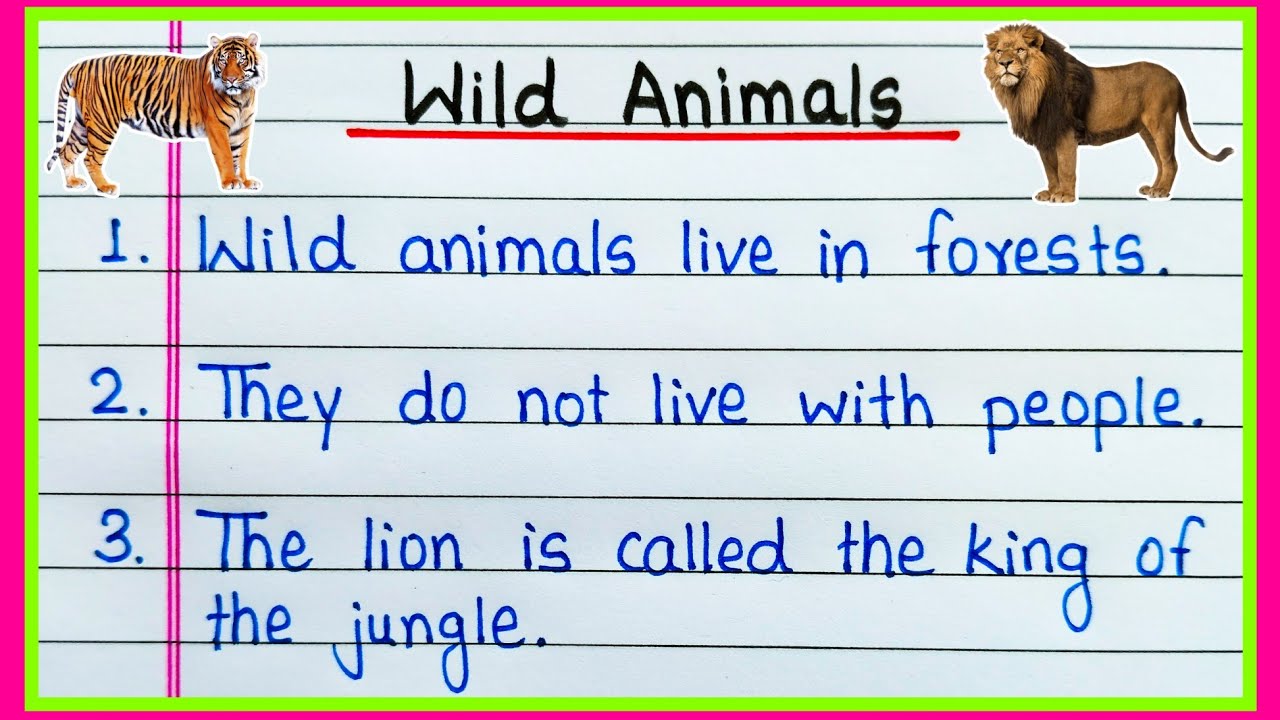 Wild Animals
1. Wild animals live in forests.
2. They do not live with people.
3. The lion is called the king of
the jungle.